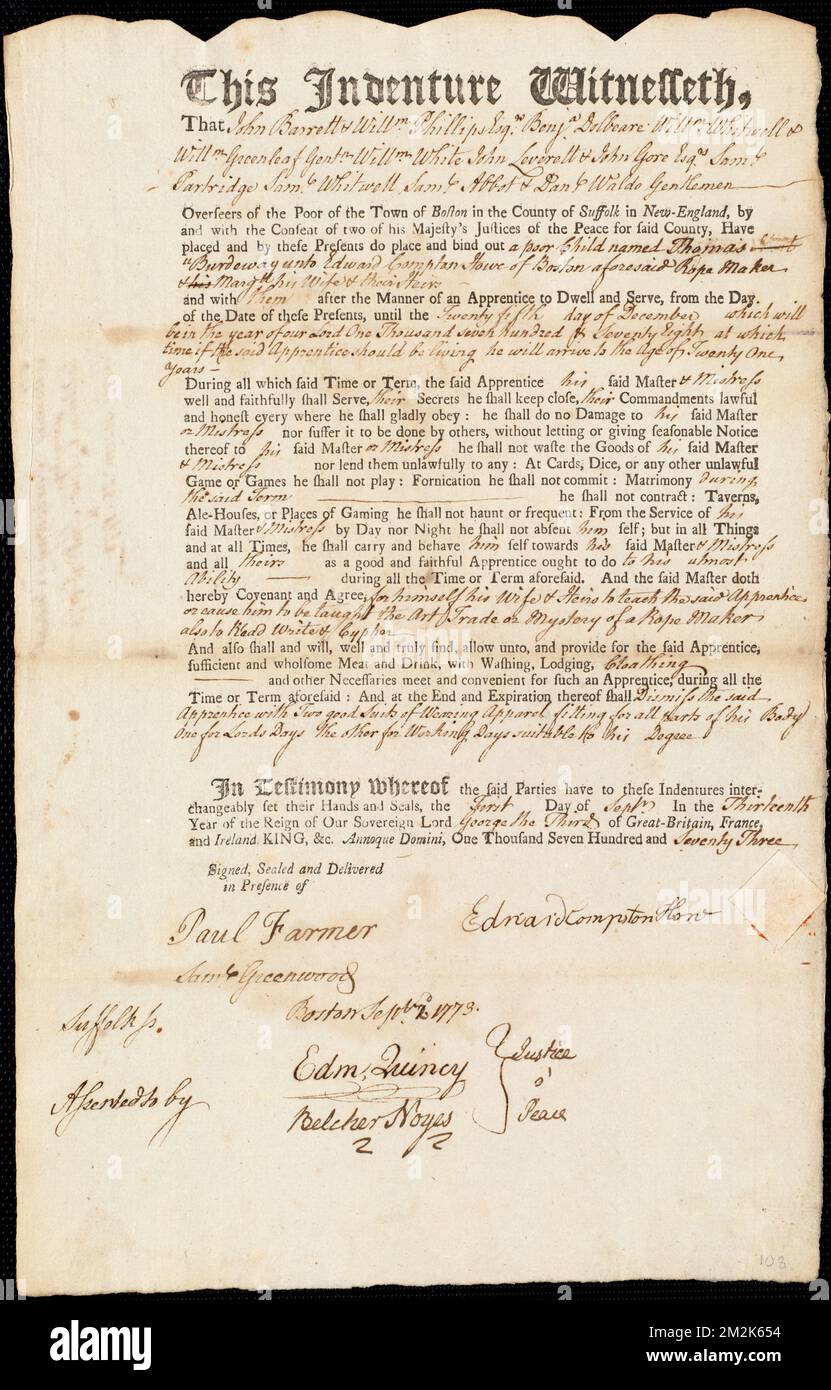 This Indenture Witnesseth,
That John Barrett & Willm Phillips Esqrs Benja Dolbeare Willm Whitwell &
Willm Greenleaf Gentn Willm White John Leverett & John Gore Esqrs Saml
Partridge Saml Whitwell, Saml Abbot & Danl Waldo Gentlemen
Overseers of the Poor of the Town of Boston in the County of Suffolk in New-England, by
and with the Consent of two of his Majesty's Justices of the Peace for said County, Have
placed and by these Presents do place and bind out a poor Child named Thomas
Burdeway unto Edward Compton Howe of Boston aforesaid Rope Maker
& his Margtt his Wife & their Heirs
and with them after the Manner of an Apprentice to Dwell and Serve, from the Day
of the Date of these Presents, until the Twenty fifth day of December which will
be in the year of our Lord One Thousand Seven hundred & Seventy Eight, at which
time if the said Apprentice should be living he will arrive to the Age of Twenty One
Years
During all which said Time or Term, the said Apprentice his said Master & Mistress
well and faithfully shall Serve, their Secrets he shall keep close, their Commandments lawful
and honest every where he shall gladly obey: he shall do no Damage to his said Master
or Mistress nor suffer it to be done by others, without letting or giving seasonable Notice
thereof to his said Master or Mistress he shall not waste the Goods of his said Master
& Mistress nor lend them unlawfully to any: At Cards, Dice, or any other unlawful
Game or Games he shall not play: Fornication he shall not commit: Matrimony during
the said Term he shall not contract: Taverns,
Ale-Houses, or Places of Gaming he shall not haunt or frequent: From the Service of his
said Master & Mistress by Day nor Night he shall not absent him self; but in all Things
and at all Times, he shall carry and behave him self towards his said Master & Mistress
and all theirs as a good and faithful Apprentice ought to do to his utmost
Ability during all the Time or Term aforesaid. And the said Master doth
hereby Covenant and Agree, for himself his Wife & Heirs to teach the said Apprentice
or cause him to be taught the Art, Trade or Mystery of a Rope Maker
also to Read Write & Cypher
And also shall and will, well and truly find, allow unto, and provide for the said Apprentice,
sufficient and wholsome Meat and Drink, with Washing, Lodging, Cloathing
and other Necessaries meet and convenient for such an Apprentice, during all the
Time or Term aforesaid: And at the End and Expiration thereof shall Dismiss the said
Apprentice with Two good Suits of Wearing Apparel fitting for all parts of his Body
One for Lords Days The other for Working Days suitable to his Degree
In Testimony whereof the said Parties have to these Indentures inter-
changeably set their Hands and Seals, the first Day of Septr In the Thirteenth
Year of the Reign of Our Sovereign Lord George the Third of Great-Britain, France,
and Ireland, KING, &c. Annoque Domini, One Thousand Seven Hundred and Seventy Three
Signed, Sealed and Delivered
in Presence of
Paul Farmer Edward Compton How
Saml Greenwood
Suffolk ss. Boston Septr 1773.
Assented to by Edm. Quincy Justice
o'
Belcher Noyes Peace
103
alamy
Image ID: 2M2K654
www.alamy.com